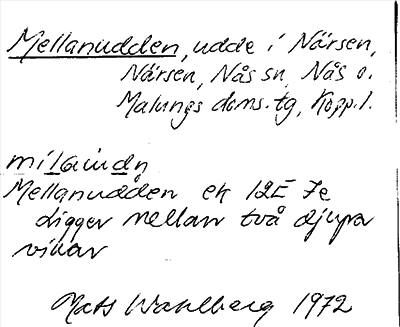 Mellanudden, udde i Närsen,
Närsen, Nås sn, Nås o.
Malungs doms. tg, Kopp. l.
Mellanudden ek 12E 7e
ligger mellan två djupa
vikar
Mats Wahlberg 1972